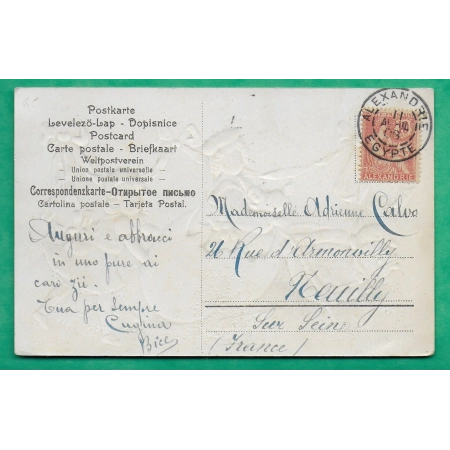 Postkarte
Levelező-Lap - Dopisnice
Postcard
Carte postale - Briefkaart
Weltpostverein
Union postale universelle
Unione postale universale
Correspondenzkarte-Открытое письмо
Cartolina postale - Tarjeta Postal.
Auguri e abbracci
in uno pure ai
cari zii.
Tua per sempre
Cugina
Bice
ALEXANDRIE
EGYPTE
ALEXANDRIE
Mademoiselle Adrienne Calvo
26 Rue d'Armonvilly
Neuilly
Sur Sein
(France)